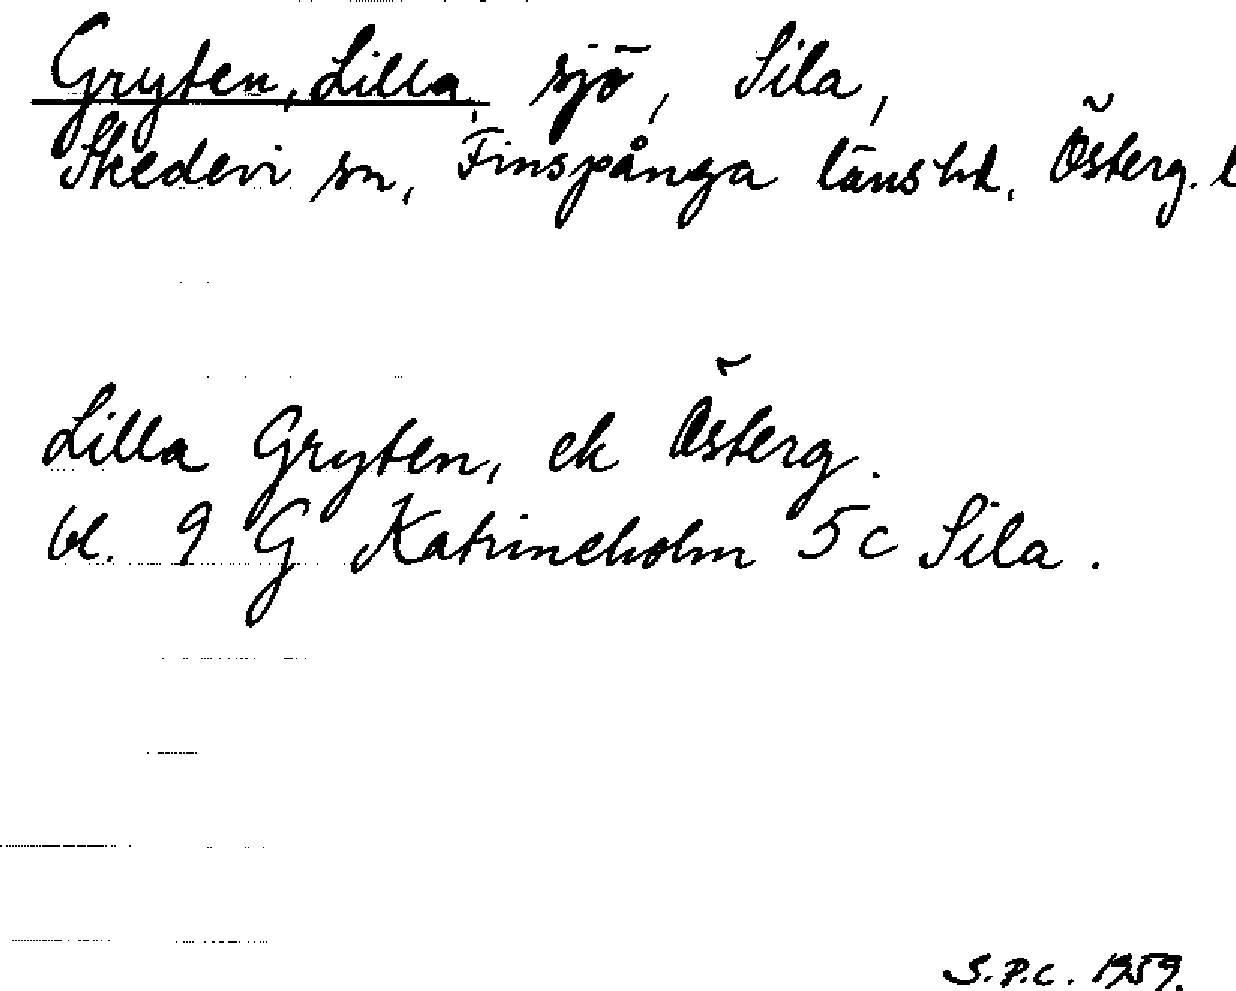 Gryten, Lilla, sjö, Sila,
Skedevi sn, Finspånga länshd. Österg. l
Lilla Gryten, ek Österg.
bl. 9 G Katrineholm 5c Sila.
S.P.C. 1959.